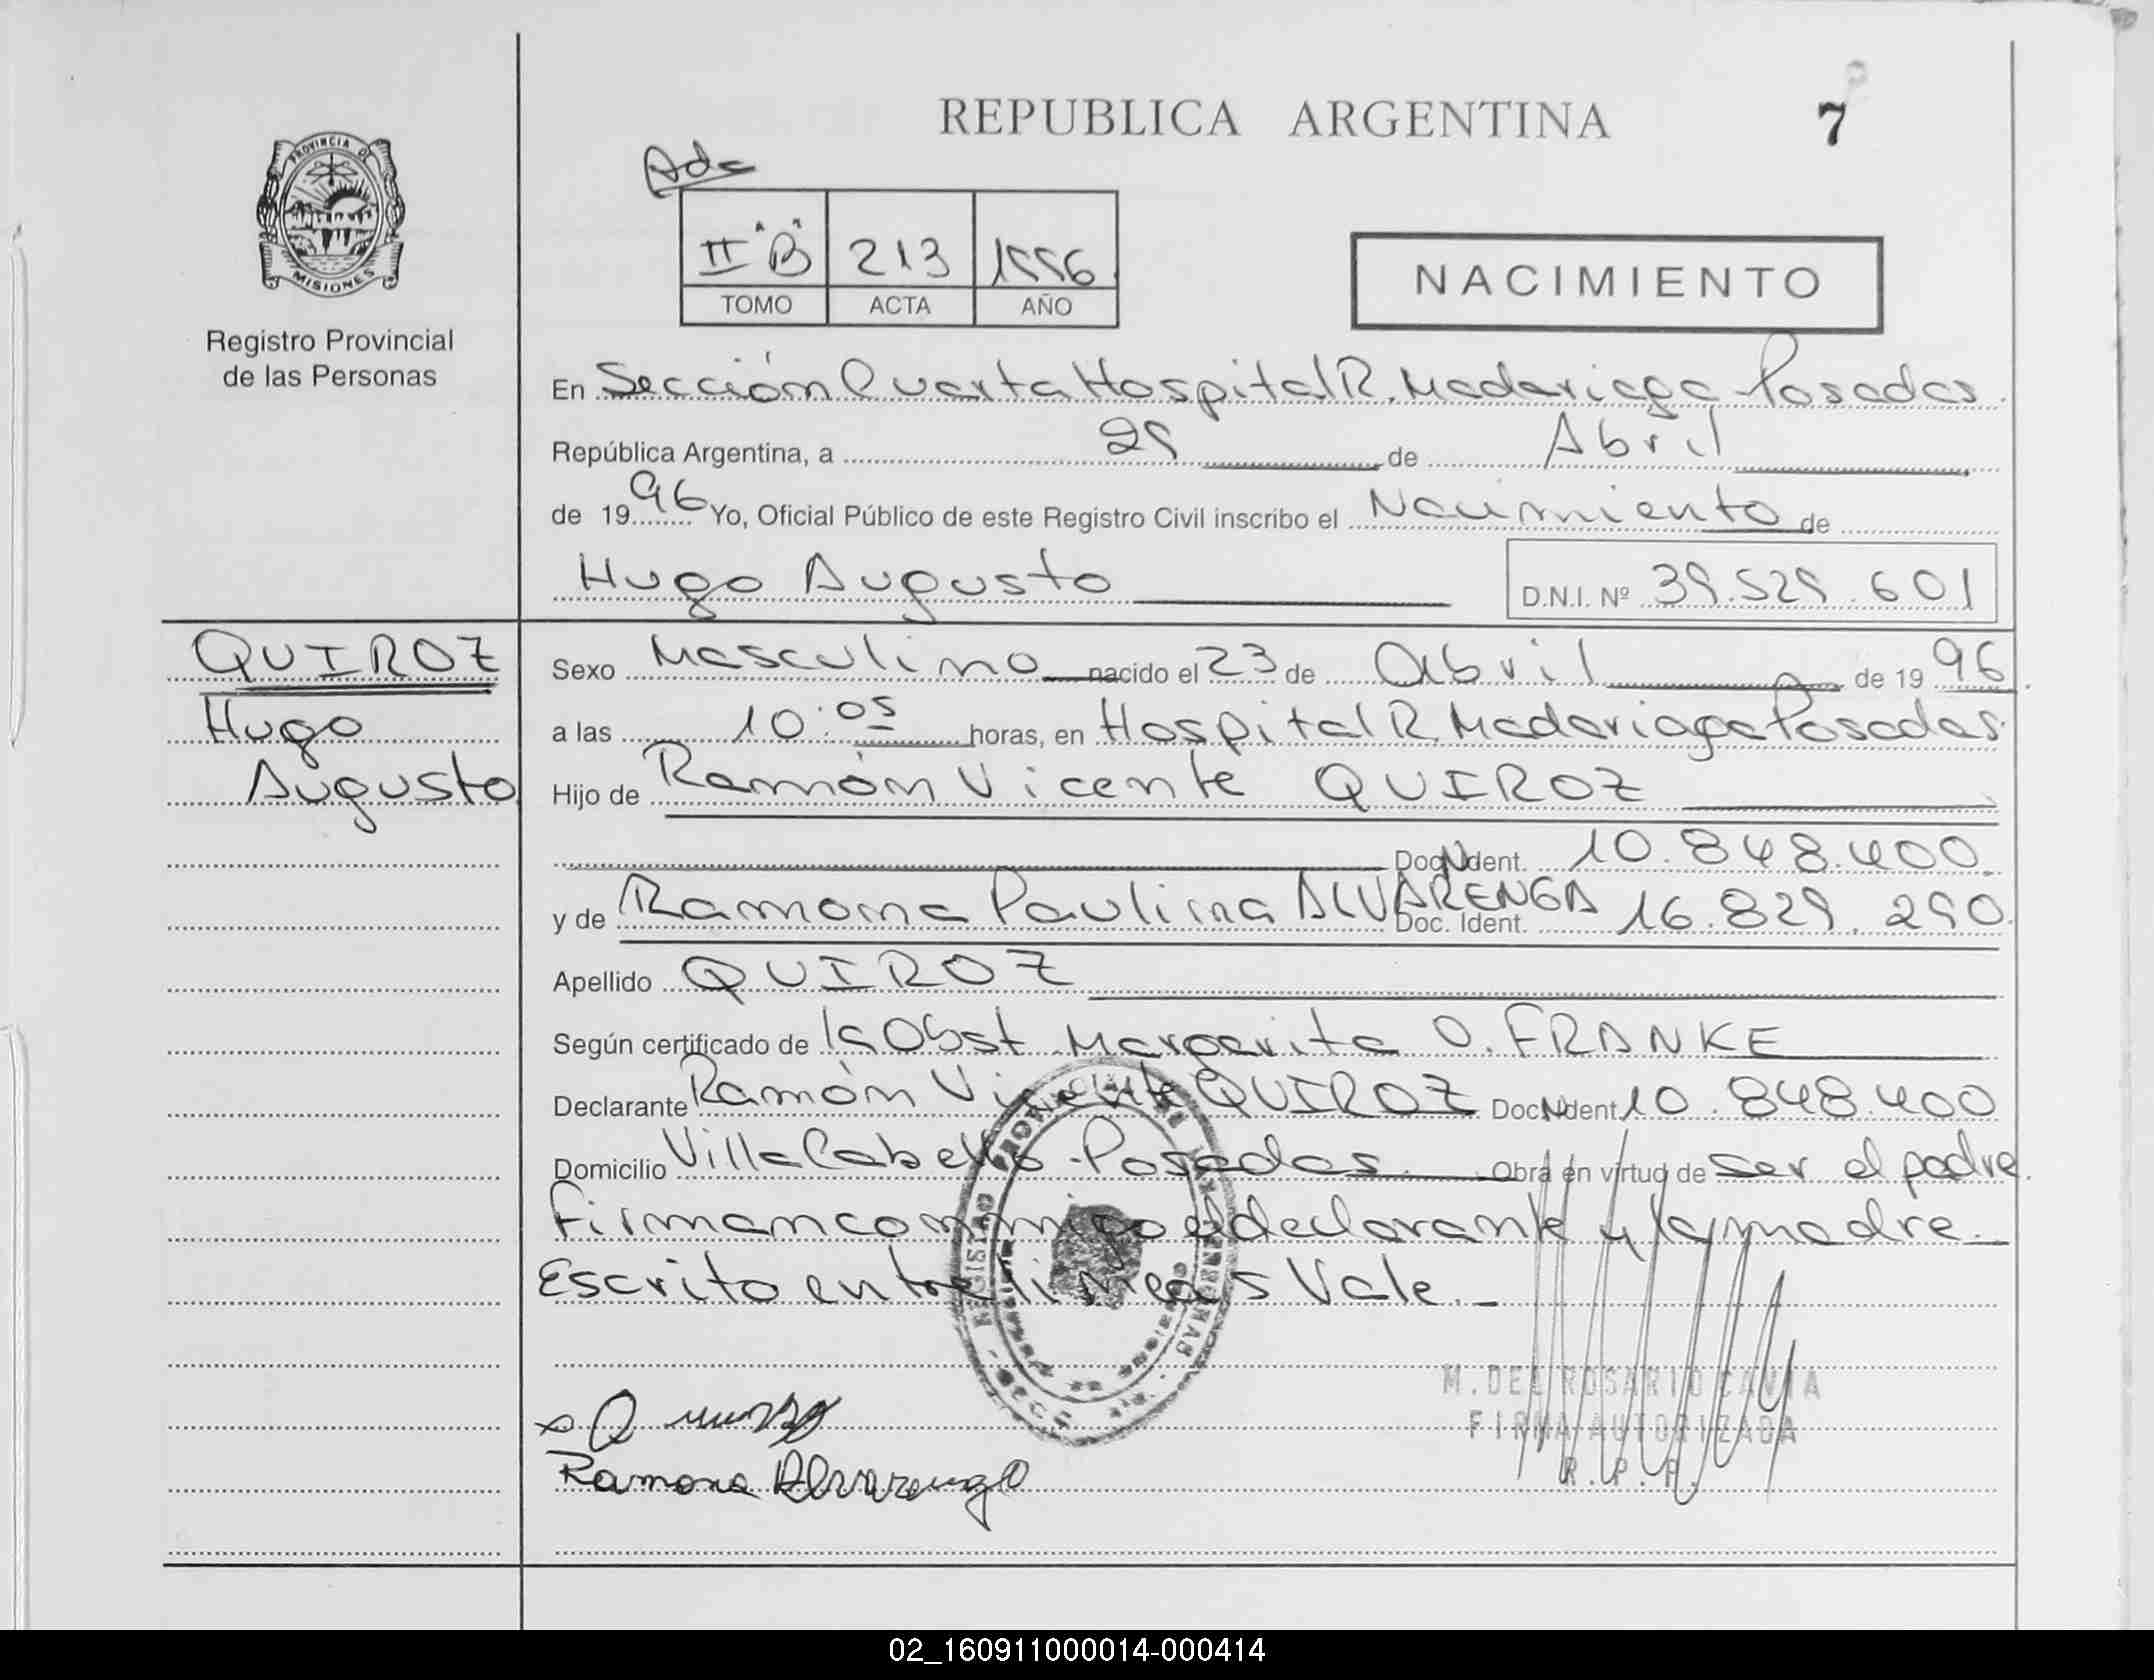 REPUBLICA ARGENTINA
7
PROVINCIA DE
MISIONES
Registro Provincial
de las Personas
Adc
II "B" 213 1996
TOMO ACTA AÑO
NACIMIENTO
En Sección Cuarta Hospital R. Madariaga Posadas
República Argentina, a 29 de Abril
de 1996 Yo, Oficial Público de este Registro Civil inscribo el Nacimiento de
Hugo Augusto D.N.I. Nº 39.529.601
QUIROZ
Hugo
Augusto
Sexo Masculino nacido el 23 de Abril de 1996
a las 10:05 horas, en Hospital R. Madariaga Posadas
Hijo de Ramón Vicente QUIROZ
Doc. Ident. 10.848.400
y de Ramona Paulina ALVARENGA Doc. Ident. 16.829.290
Apellido QUIROZ
Según certificado de la Obst. Margarita O. FRANKE
Declarante Ramón Vicente QUIROZ Doc. Ident 10.848.400
Domicilio Villa Cabello - Posadas Obra en virtud de ser el padre
Firman conmigo el declarante y la madre.
Escrito entre lineas Vale.
M. DEL ROSARIO CAVIA
FIRMA AUTORIZADA
R.P.P.
Ramona Alvarenga
02_160911000014-000414